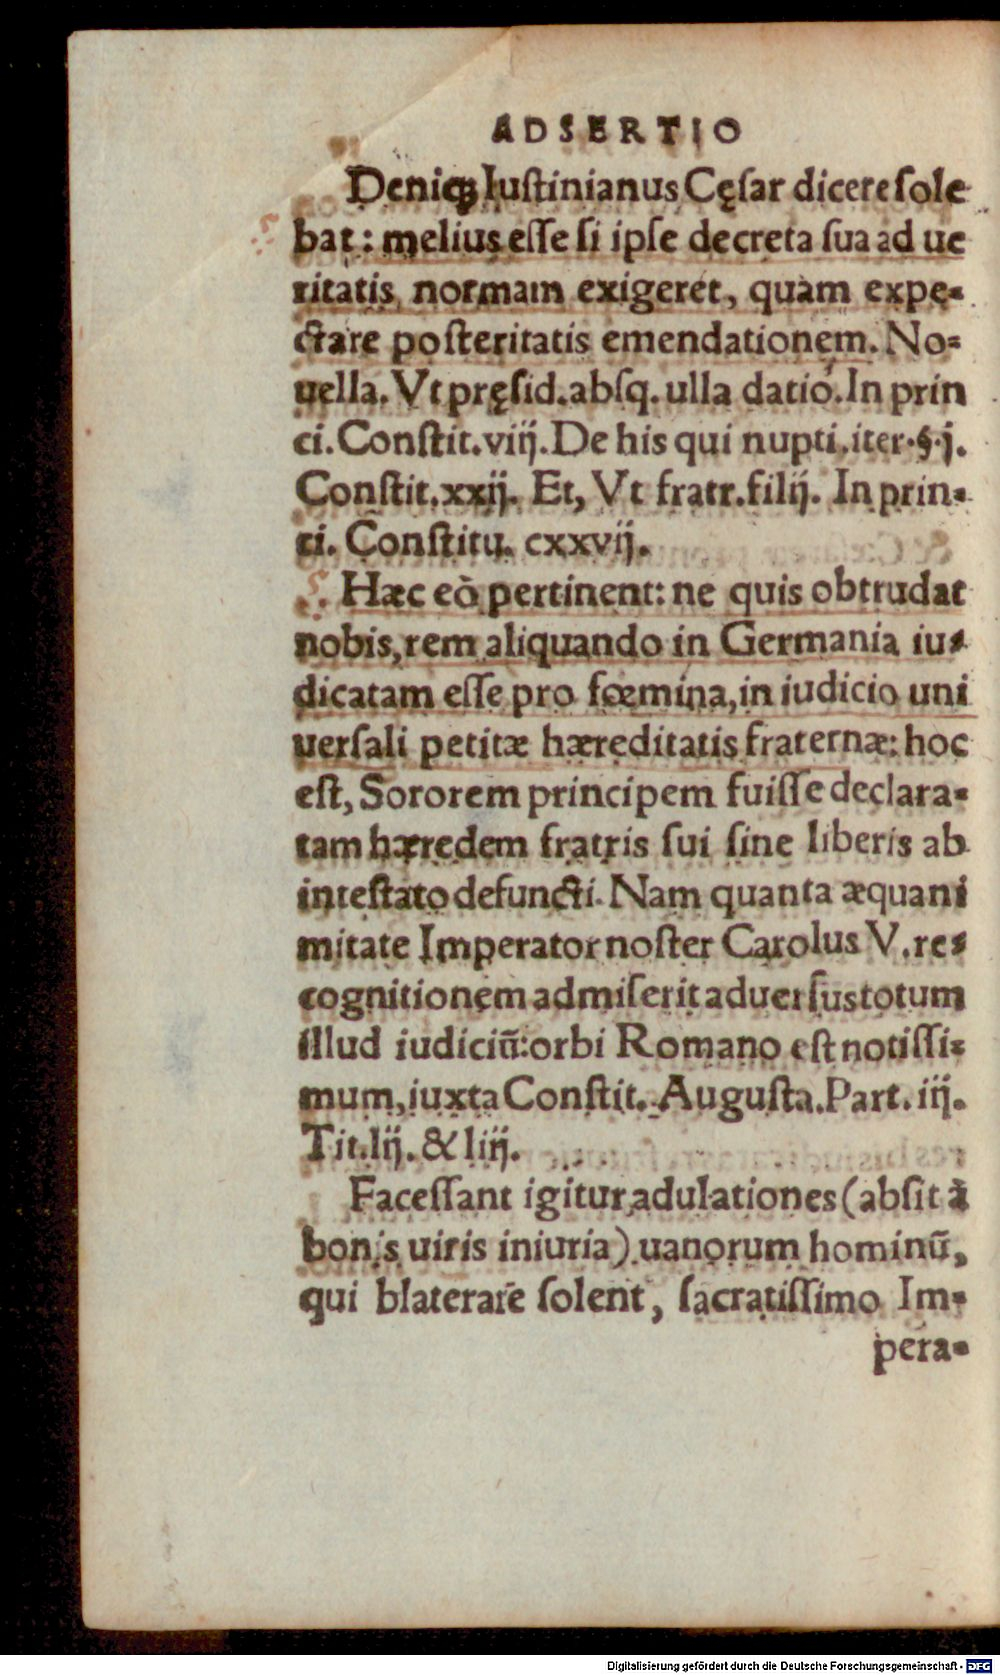 ADSERTIO
Deniqꝫ Iuſtinianus Cęſar dicere ſole
bat: melius eſſe ſi ipſe decreta ſua ad ue
ritatis normam exigeret, quàm expe-
ctare poſteritatis emendationem. No-
uella. Vt pręſid. abſq. ulla datio. In prin
ci. Conſtit. viij. De his qui nupti. iter. §. j.
Conſtit. xxij. Et, Vt fratr. filij. In prin-
ci. Conſtitu. cxxvij.
Hæc eò pertinent: ne quis obtrudat
nobis, rem aliquando in Germania iu-
dicatam eſſe pro fœmina, in iudicio uni
uerſali petitæ hæreditatis fraternæ: hoc
eſt, Sororem principem fuiſſe declara-
tam hæredem fratris ſui ſine liberis ab
inteſtato defuncti. Nam quanta æquani
mitate Imperator noſter Carolus V. re-
cognitionem admiſerit aduerſus totum
illud iudiciũ: orbi Romano eſt notiſſi-
mum, iuxta Conſtit. Auguſta. Part. iij.
Tit. lij. & liij.
Faceſſant igitur adulationes (abſit à
bonis uiris iniuria) uanorum hominũ,
qui blaterare ſolent, ſacratiſſimo Im-
pera-
Digitalisierung gefördert durch die Deutsche Forschungsgemeinschaft - DFG